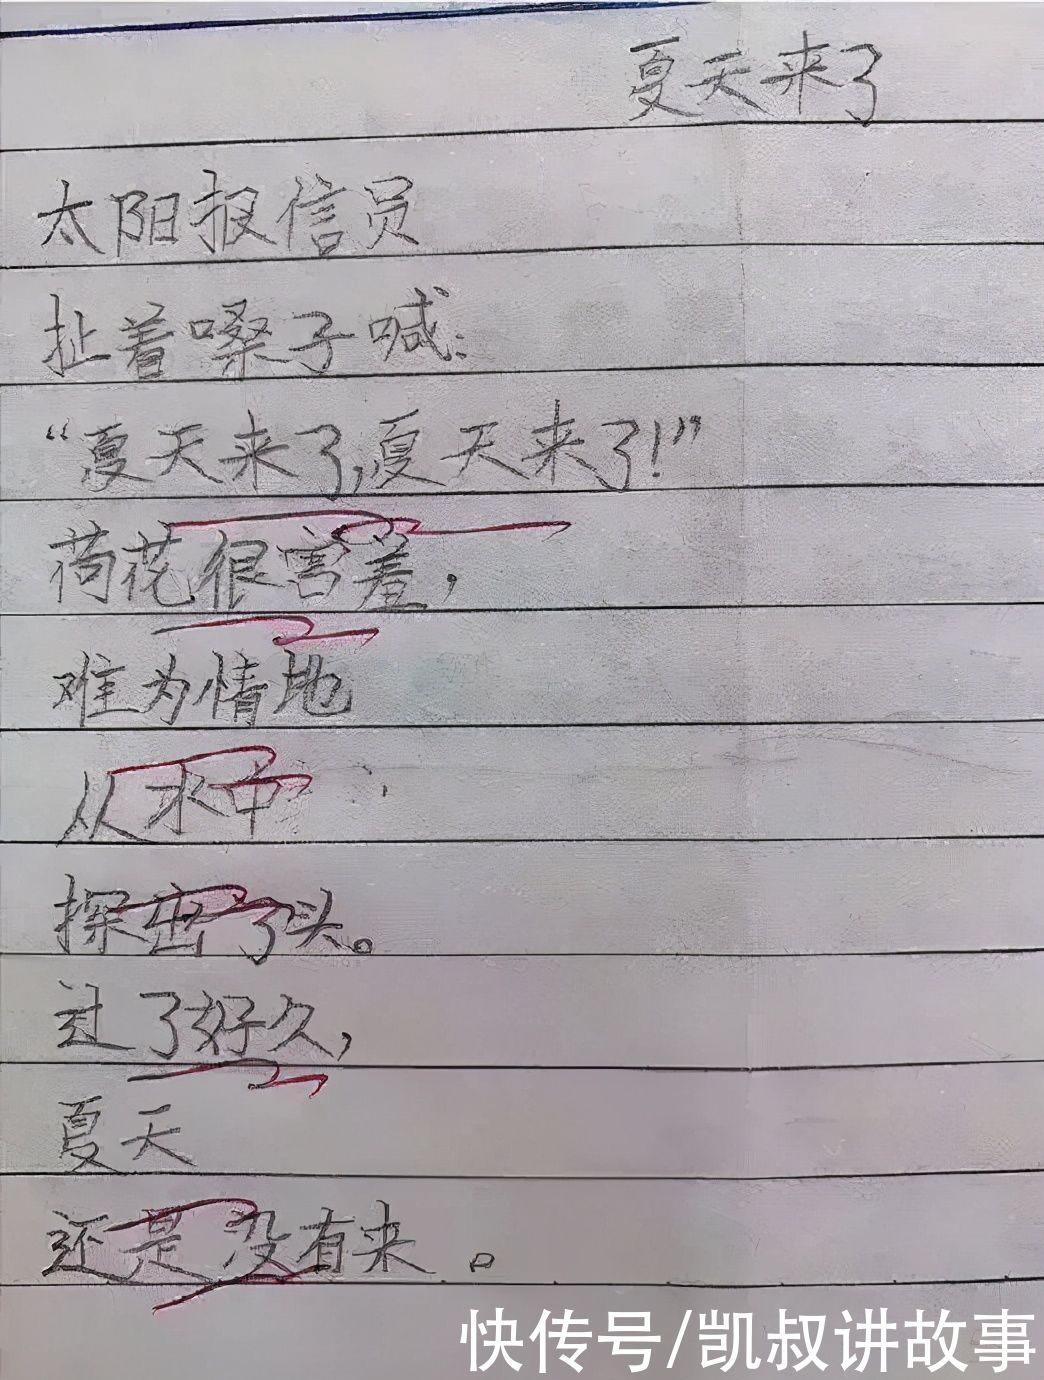 夏天来了
太阳报信员
扯着嗓子喊:
“夏天来了,夏天来了!”
荷花很害羞,
难为情地
从水中
探出了头。
过了好久,
夏天
还是没有来。
快传号/凯叔讲故事